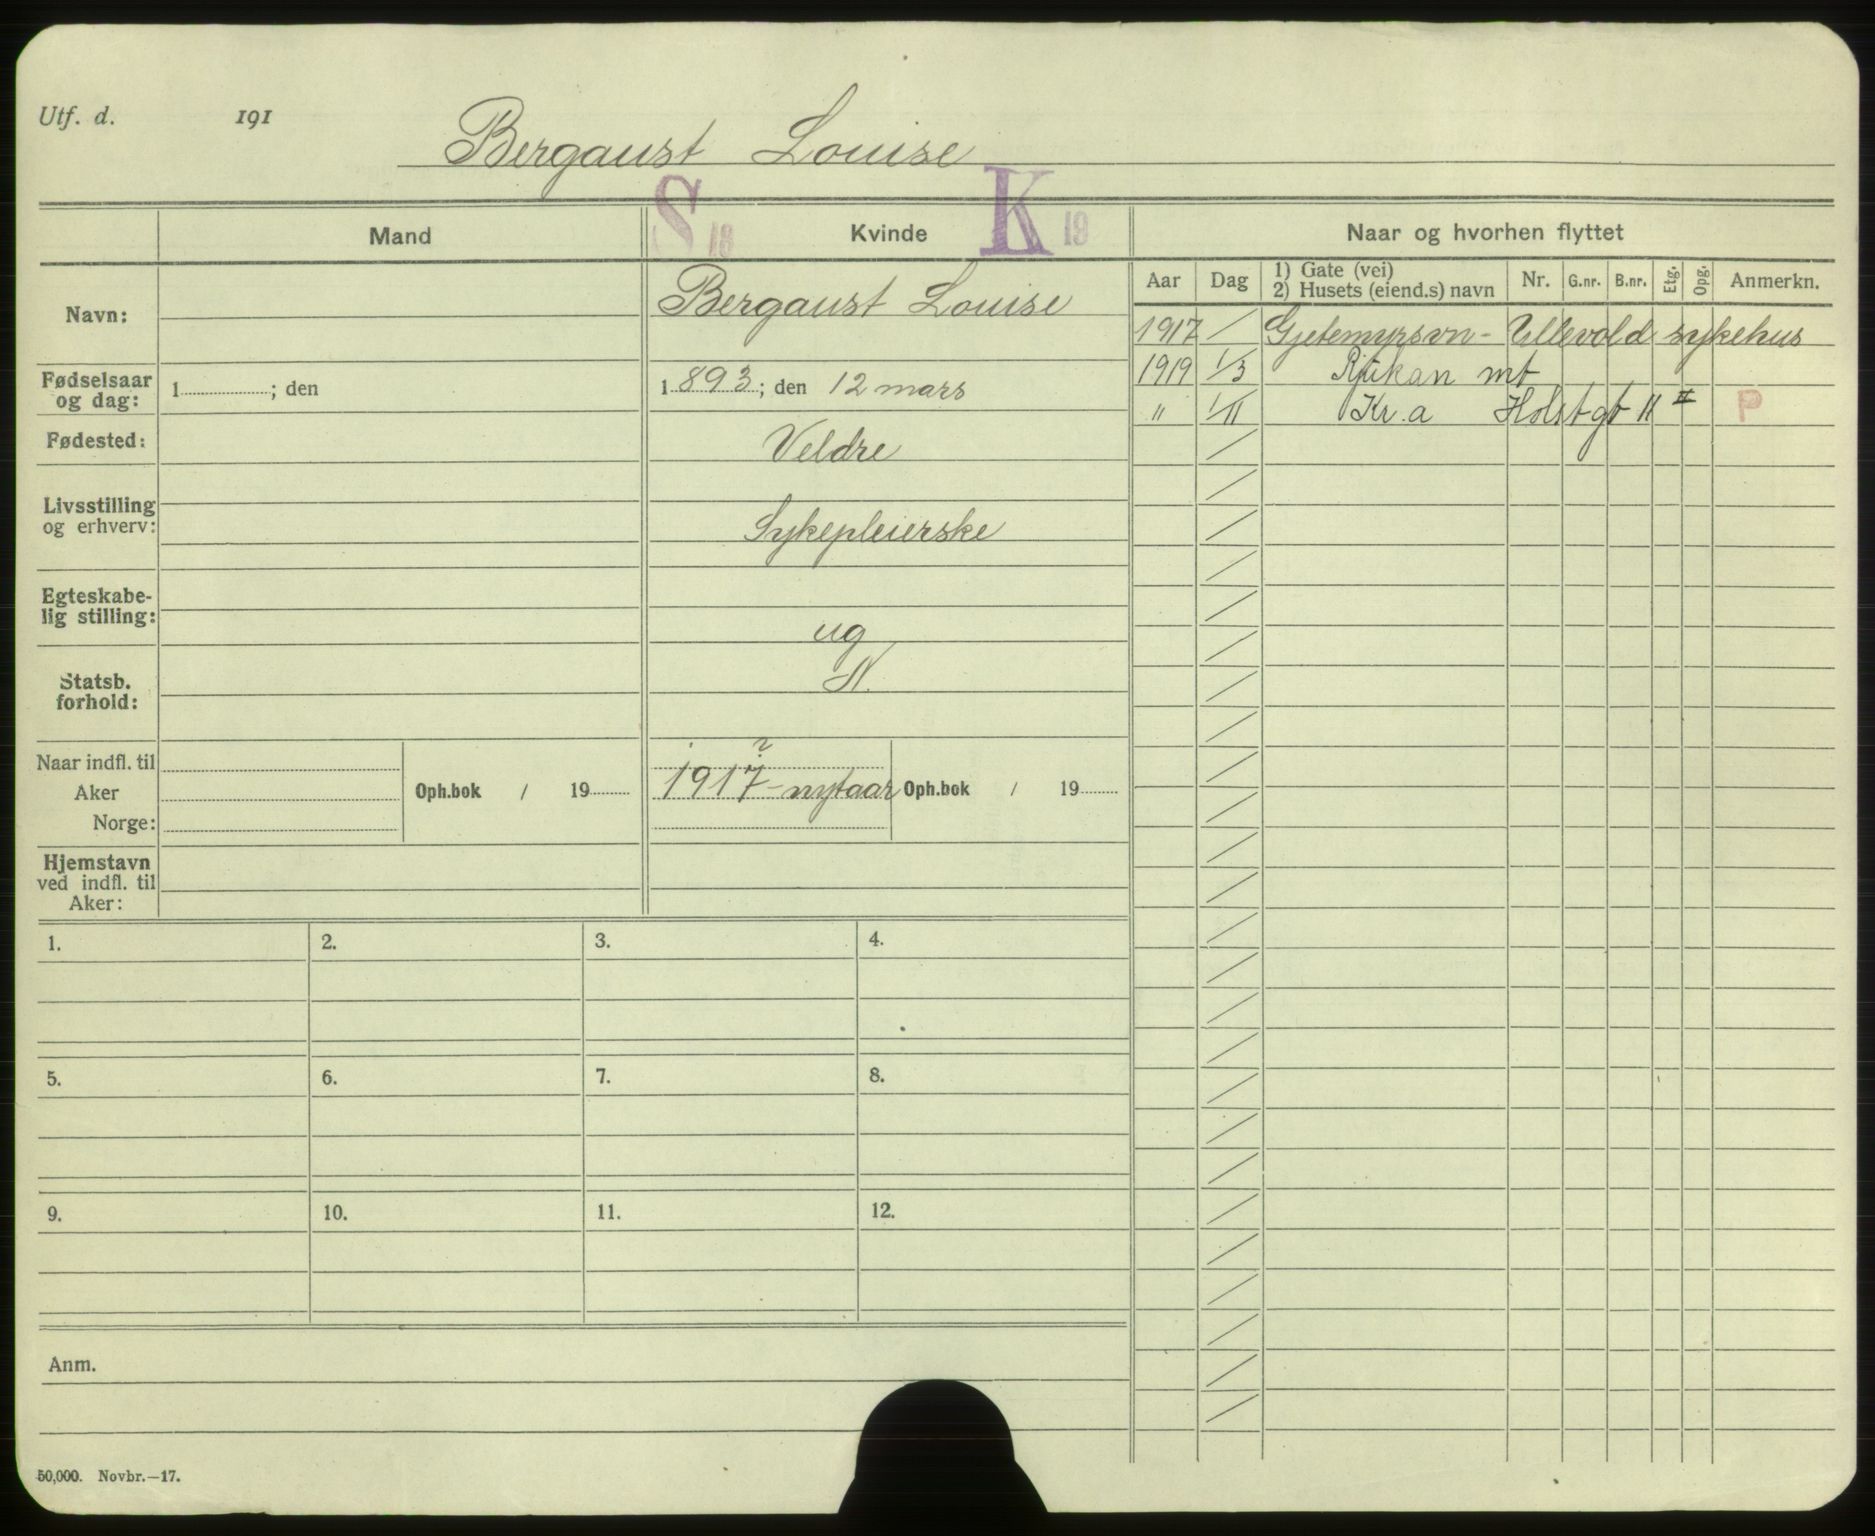 Utf. d. 191
Bergaust Louise
S 18 K 19
Mand Kvinde Naar og hvorhen flyttet
Aar Dag 1) Gate (vei) 2) Husets (eiend.s) navn Nr. G.nr. B.nr. Etg. Opg. Anmerkn.
Navn: Bergaust Louise
1917 / Gjetemyrsvn - Ullevold sykehus
1919 1/3 Rjukan mt
" 1/11 Kr.a Holstgt 11 II P
Fødselsaar og dag: 1 ; den 1893; den 12 mars
Fødested: Veldre
Livsstilling og erhverv: Sykepleierske
Egteskabe-
lig stilling: ug
Statsb.
forhold: N.
Naar indfl. til
Aker
Norge:
Oph.bok / 19
?
1917 - nytaar Oph.bok / 19
Hjemstavn
ved indfl. til
Aker:
1. 2. 3. 4.
5. 6. 7. 8.
9. 10. 11. 12.
Anm.
50,000. Novbr.—17.